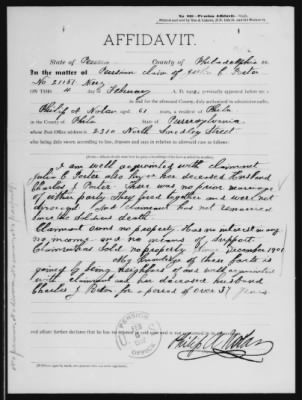 No. 310—Pension Affidavit.
AFFIDAVIT.
State of Penna County of Philadelphia ss
In the matter of Pension claim of Julia E Porter
No 21181 Navy
ON THIS 11 day of February A. D.
in and for the aforesaid County, duly authorized to administer oaths,
Philip A. Nolan aged 61 years, a resident of Phila
in the County of Phila State of Pennsylvania
whose Post Office address is 2310 North Street
who being duly sworn according to law, deposes and says in relation to aforesaid case, as follows:
I am well acquainted with claimant
Julia E Porter also knew her deceased Husband
Charles J. Porter. There was no prior marriage
of either party They lived together and were not
divorced and claimant has not remarried
since the soldiers death
Claimant owns no property. Has no interest in any
no income and no means of support.
Claimant has sold no property since December 1901
My knowledge of these facts is
gained by being neighbors of and well acquainted
with claimant and her deceased husband
Charles J Porter for a period of over 31 years
and affiant further declares that he has no interest in said case
PENSION
OFFICE
Philip A Nolan